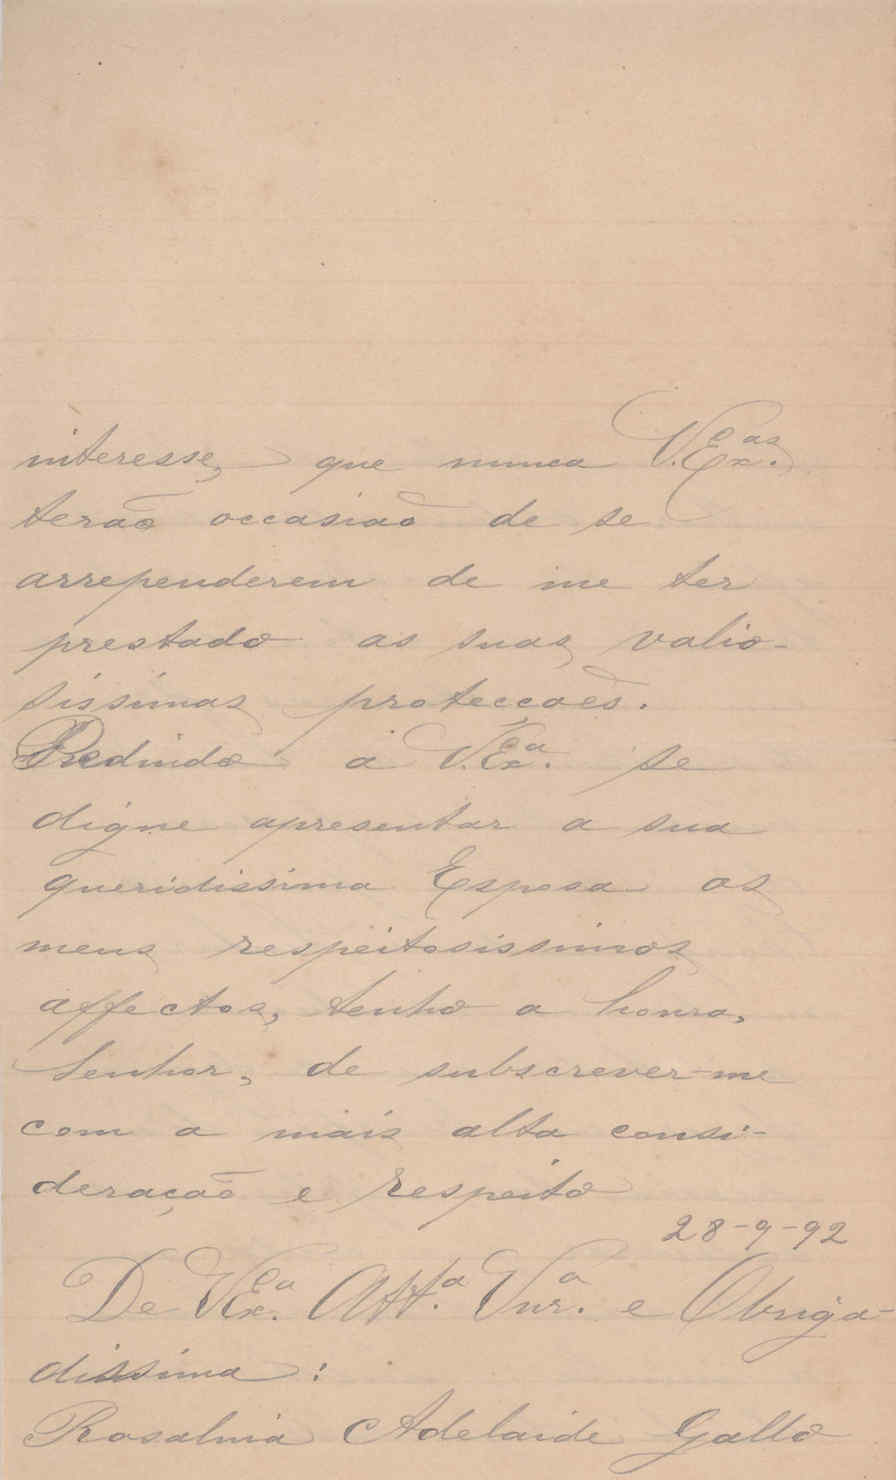 interesse, que nunca V.Ex.as
terão occasião de se
arrependerem de me ter
prestado as suas valio-
sissimas protecçoēs.
Pedindo a V.Ex.a se
digne apresentar a sua
queridissima Esposa os
meus respeitosissimos
affectos, tenho a honra,
Senhor, de subscrever-me
com a mais alta consi-
deração e respeito
28-9-92
De V.Ex.a Att.a Vnr.a e Obriga-
dissima:
Rosalina Adelaide Gallo